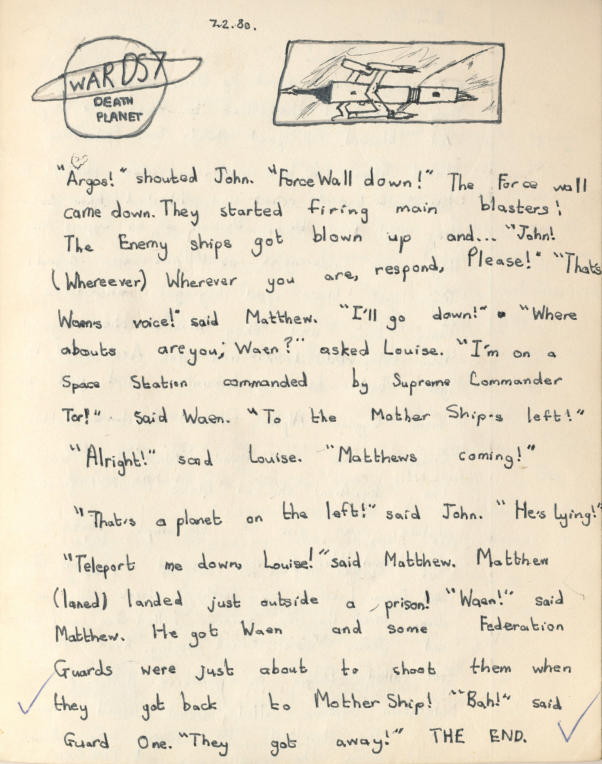 7.2.80.
WARDS 7
DEATH
PLANET
"Argos!" shouted John. "Force Wall down!" The Force wall
came down. They started firing main blasters!
The Enemy ships got blown up and... "John!
(Whereever) Wherever you are, respond, Please!" "That's
Waens voice!" said Matthew. "I'll go down!" "Where
abouts are you, Waen?" asked Louise. "I'm on a
Space Station commanded by Supreme Commander
Tor!" said Waen. "To the Mother Ship's left!"
"Alright!" said Louise. "Matthews coming!"
"That's a planet on the left!" said John. "He's lying!"
"Teleport me down, Louise!" said Matthew. Matthew
(laned) landed just outside a prison! "Waen!" said
Matthew. He got Waen and some Federation
Guards were just about to shoot them when
they got back to Mother Ship! "Bah!" said
Guard One. "They got away!" THE END.